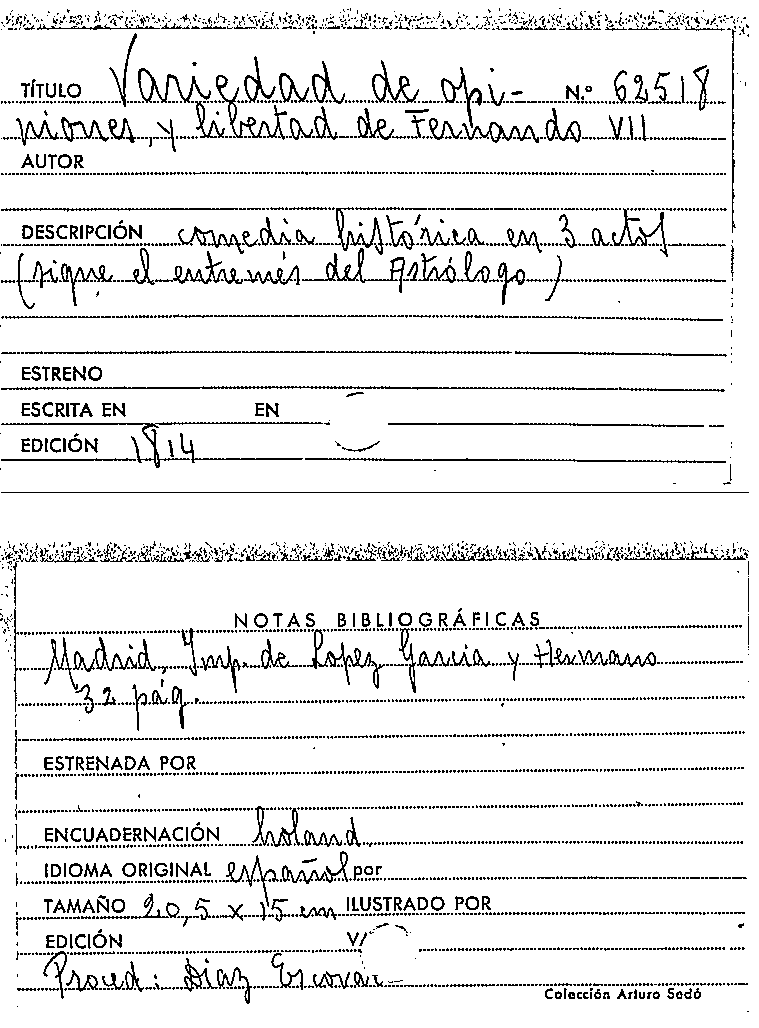 TÍTULO Variedad de opi- N.º 62518
niones, y libertad de Fernando VII
AUTOR
DESCRIPCIÓN comedia histórica en 3 actos
(sigue el entremés del Astrólogo)
ESTRENO
ESCRITA EN EN
EDICIÓN 1814
NOTAS BIBLIOGRÁFICAS
Madrid, Imp. de Lopez Garcia y Hermano
32 pág.
ESTRENADA POR
ENCUADERNACIÓN holand.
IDIOMA ORIGINAL español por
TAMAÑO 20,5 x 15 cm ILUSTRADO POR
EDICIÓN V/
Proced: Diaz Escovar
Colección Arturo Sedó